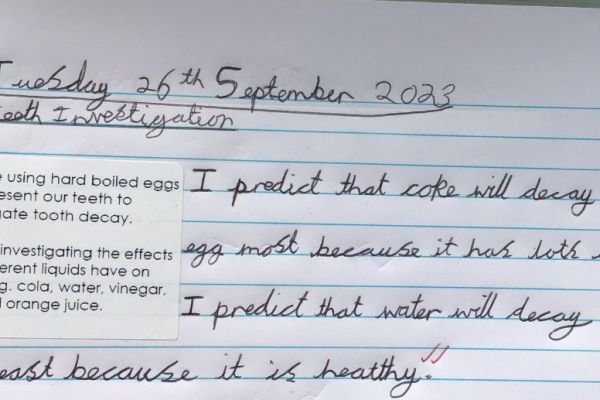 Tuesday 26th September 2023
Teeth Investigation
using hard boiled eggs
esent our teeth to
ate tooth decay.
investigating the effects
erent liquids have on
g. cola, water, vinegar,
orange juice.
I predict that coke will decay
egg most because it has lots
I predict that water will decay
east because it is healthy.